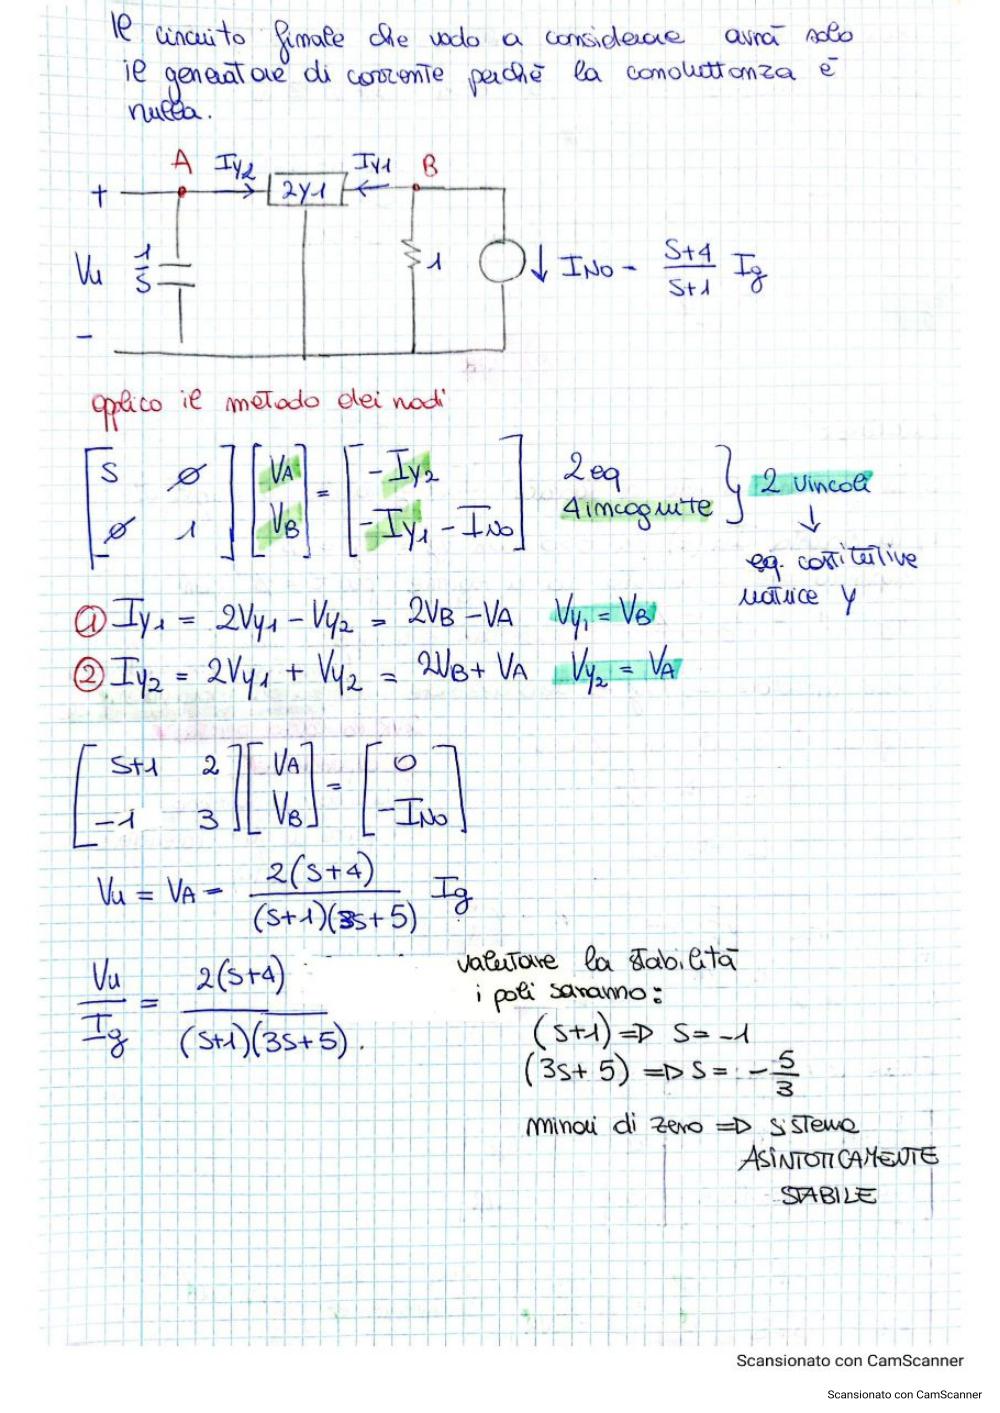 Il circuito finale che vado a considerare avrà solo
il generatore di corrente perchè la conduttanza è
nulla.
A Iy2 Iy1 B
+ 2Y1
Vu 1/S 1 ↓ INo = S+4/S+1 Ig
-
applico il metodo dei nodi
[S ∅; ∅ 1] [VA; VB] = [-Iy2; -Iy1 - INo] 2 eq 4 incognite } 2 vincoli
↓
eq. costitutive
matrice Y
① Iy1 = 2Vy1 - Vy2 = 2VB - VA Vy1 = VB
② Iy2 = 2Vy1 + Vy2 = 2VB + VA Vy2 = VA
[S+1 2; -1 3] [VA; VB] = [0; -INo]
Vu = VA = 2(S+4)/(S+1)(3S+5) Ig
Vu/Ig = 2(S+4)/(S+1)(3S+5).
valutare la stabilità
i poli saranno:
(S+1) => S = -1
(3S+5) => S = -5/3
minori di zero => sistema
ASINTOTICAMENTE
STABILE
Scansionato con CamScanner
Scansionato con CamScanner